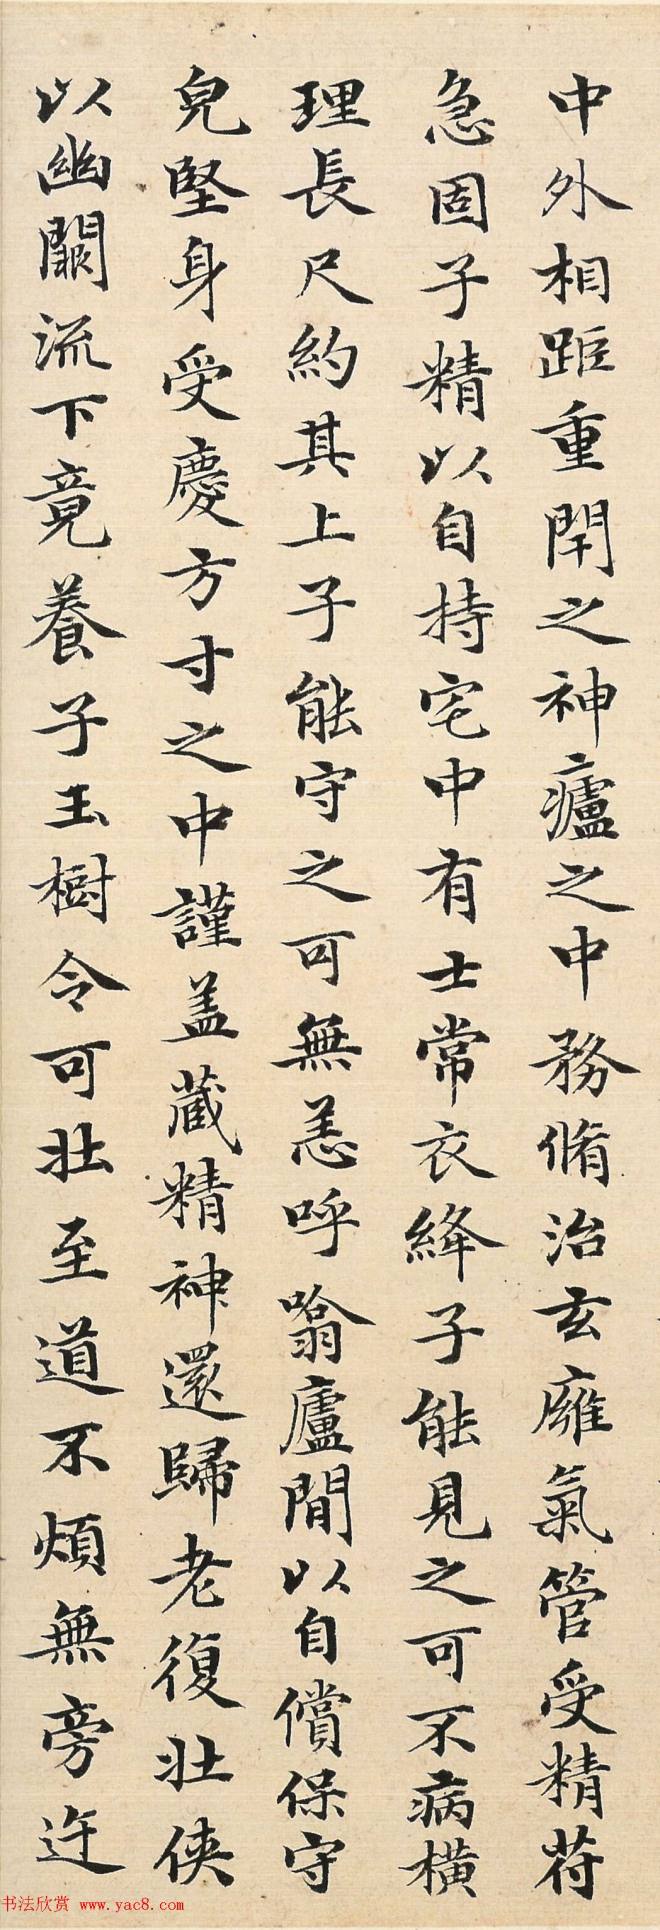 中外相距重閇之神廬之中務脩治玄膺氣管受精苻
急固子精以自持宅中有士常衣絳子能見之可不病橫
理長尺約其上子能守之可無恙呼噏廬間以自償保守
皃堅身受慶方寸之中謹盖藏精神還歸老復壯俠
以幽闕流下竟養子玉樹令可壯至道不煩無旁迕
书法欣赏 www.yac8.com